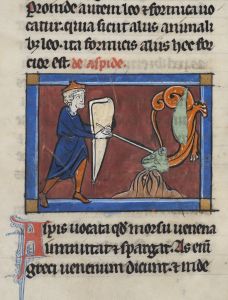 proinde autem leo et formica uo
catur. quia sicut aliis animali
bꝫ leo. ita formicis aliis hec for
cior est. de aspide.
Aspis uocata qđ morsu uenena
inmittat et spargat. As eni̅
greci uenenum dicunt et inde